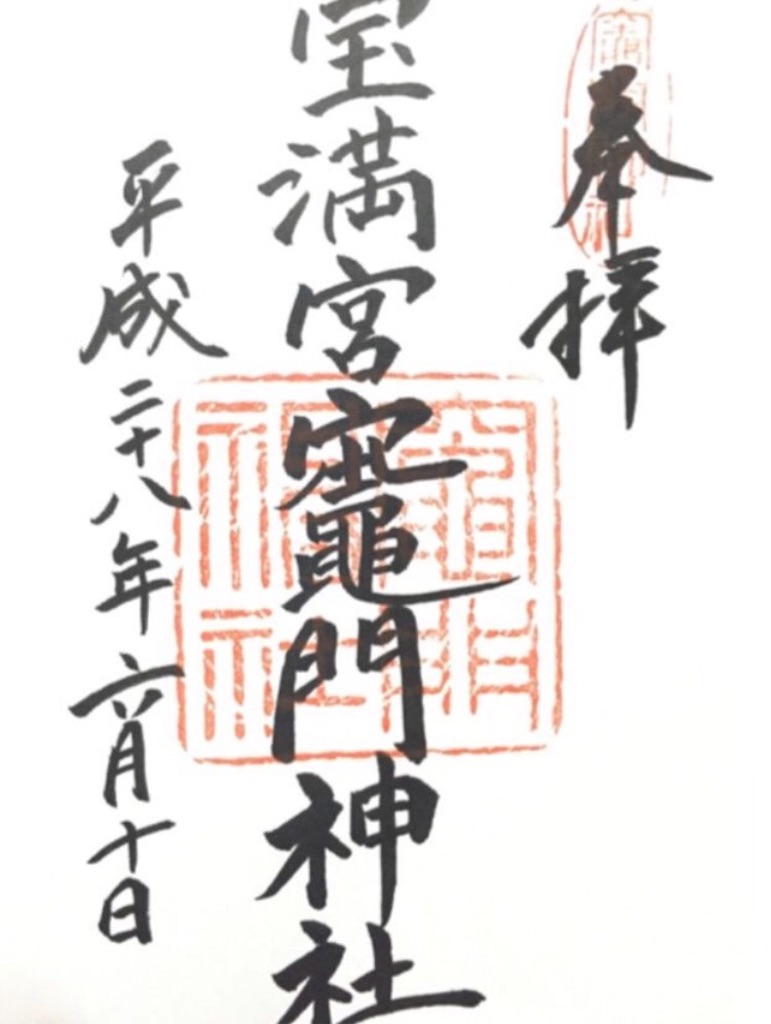 奉拝
宝満宮竈門神社
平成二十八年六月十日
竈門神社